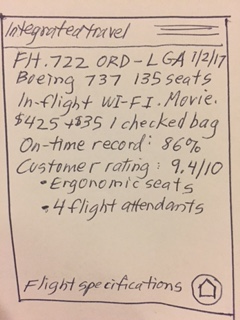 Integrated travel
FH. 722 ORD-LGA 1/2/17
Boeing 737 135 seats
In-flight WI-FI. Movie.
$425 +$35 1 checked bag
On-time record: 86%
Customer rating: 9.4/10
• Ergonomic seats
• 4 flight attendants
Flight specifications